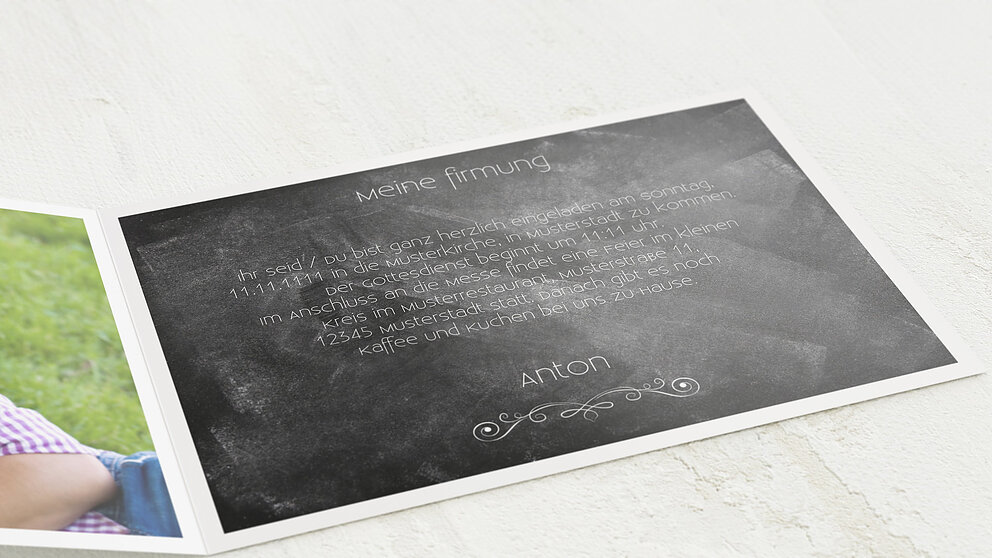 Meine Firmung
Ihr seid / Du bist ganz herzlich eingeladen am Sonntag,
11.11.1111 in die Musterkirche, in Musterstadt zu kommen.
Der Gottesdienst beginnt um 11:11 Uhr.
Im Anschluss an die Messe findet eine Feier im kleinen
Kreis im Musterrestaurant, Musterstraße 11,
12345 Musterstadt statt. Danach gibt es noch
Kaffee und Kuchen bei uns zu Hause.
Anton